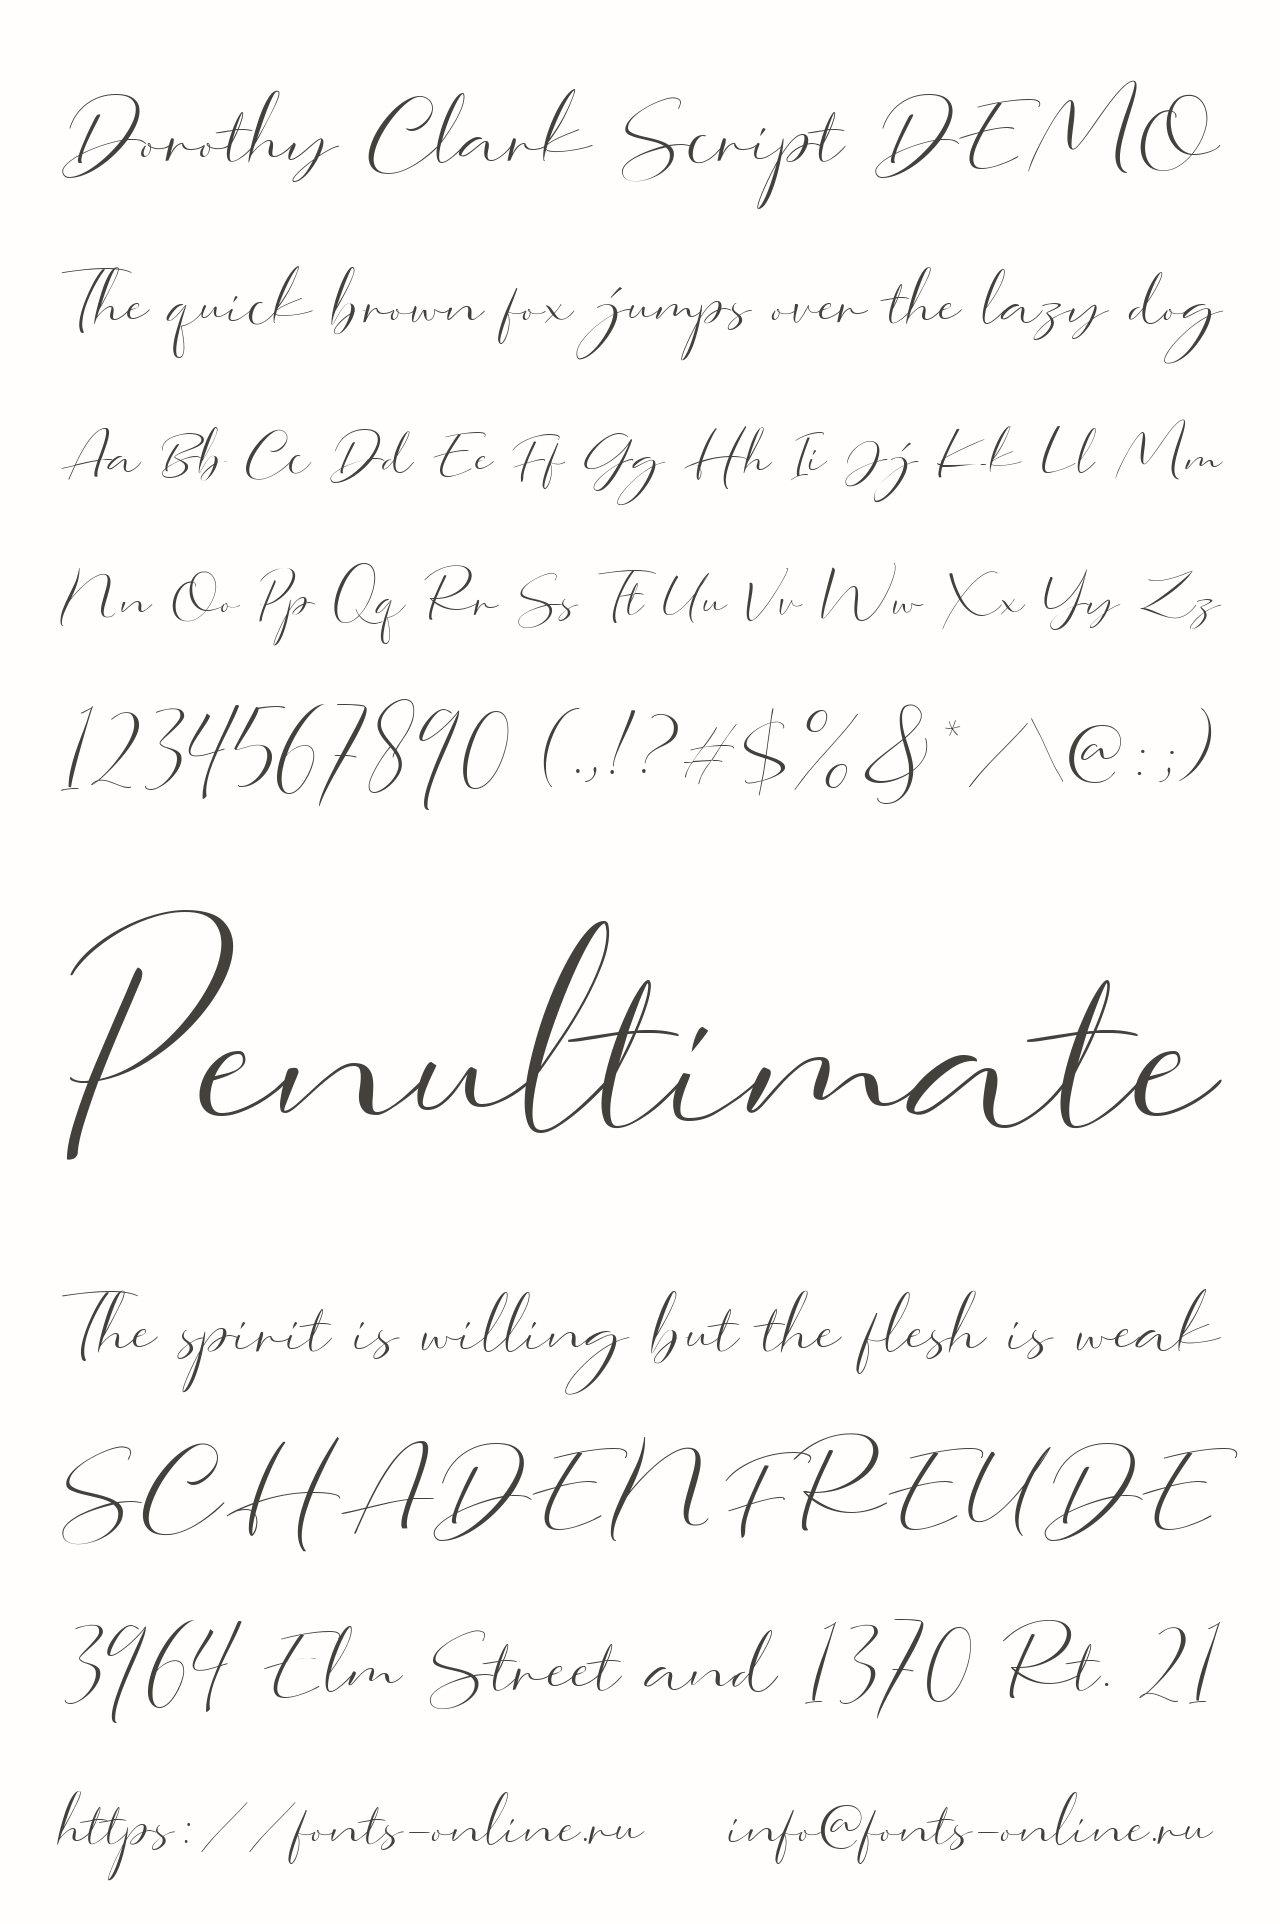 Dorothy Clark Script DEMO
The quick brown fox jumps over the lazy dog
Aa Bb Cc Dd Ee Ff Gg Hh Ii Jj Kk Ll Mm
Nn Oo Pp Qq Rr Ss Tt Uu Vv Ww Xx Yy Zz
1234567890 (.,!?#$%&*/\@:;)
Penultimate
The spirit is willing but the flesh is weak
SCHADENFREUDE
3964 Elm Street and 1370 Rt. 21
https://fonts-online.ru info@fonts-online.ru